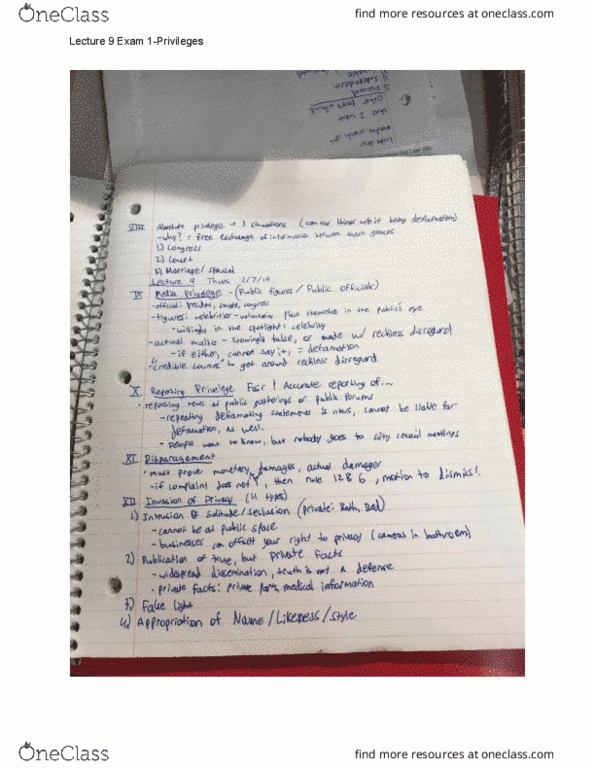 OneClass
find more resources at oneclass.com
Lecture 9 Exam 1-Privileges
VIII Absolute privilege → 3 situations (can say things w/o it being defamation)
-why? = Free exchange of information between these groups
1) Congress
2) Court
3) Marriage/spousal
Lecture 9 Thurs 2/7/
IX Media Privilege - (Public figures / Public officials)
-official: president, senate, congress
-figures: celebrities - voluntarily place themselves in the public's eye
-willingly in the spotlight = celebrity
-actual malice - knowingly false, or made w/ reckless disregard
-if either, cannot say it, = defamation
-"credible sources" to get around reckless disregard
X. Reporting Privelege Fair & Accurate reporting of...
• reporting news at public gatherings or public forums
-repeating defamating statements is news, cannot be liable for
defamation, as well.
• people want to know, but nobody goes to city council meetings
XI Disparagement
• must prove monetary damages, actual damages
-if complaint does not, then rule 12 B 6, motion to dismiss!
XII Invasion of Privacy (4 types)
1) Intrusion @ solitude/seclusion (private: Bath, Bed)
-cannot be at public space
-businesses can offset your right to privacy (cameras in bathroom)
2) Publication of true, but private facts
-widespread dissemination, truth is not a defense
-private facts: private parts, medical information
3) False light
4) Appropriation of Name/Likeness/style
OneClass
find more resources at oneclass.com